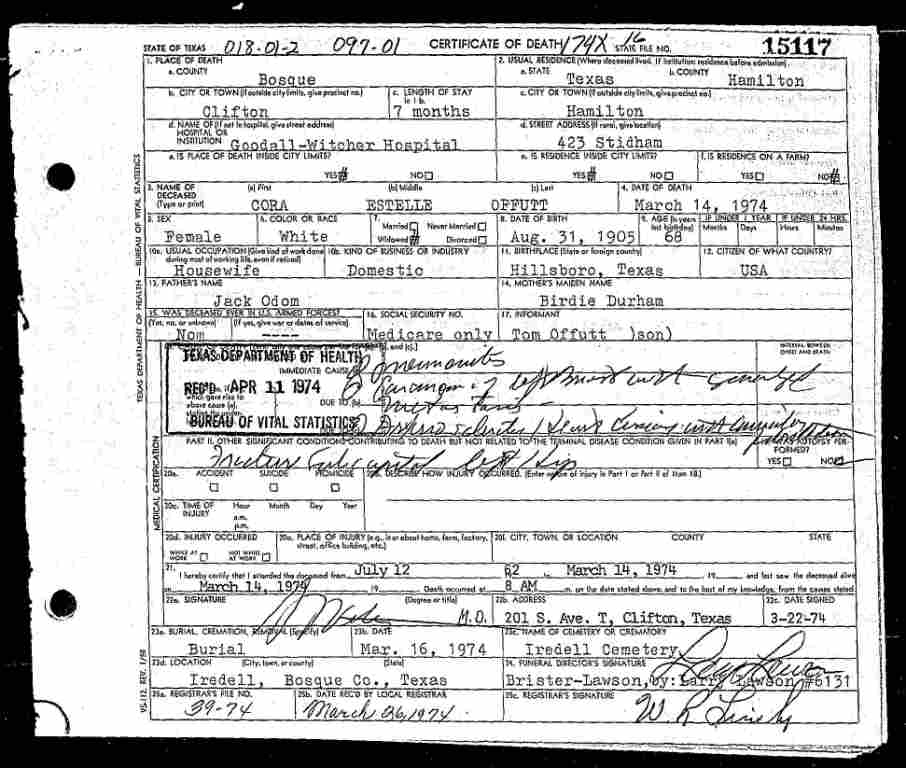 STATE OF TEXAS 018-01-2 097-01 CERTIFICATE OF DEATH 174X 16 STATE FILE NO. 15117
1. PLACE OF DEATH 2. USUAL RESIDENCE (Where deceased lived. If institution: residence before admission)
a. COUNTY a. STATE b. COUNTY
Bosque Texas Hamilton
b. CITY OR TOWN (If outside city limits, give precinct no.) c. LENGTH OF STAY in 1 b. c. CITY OR TOWN (If outside city limits, give precinct no.)
Clifton 7 months Hamilton
d. NAME OF (If not in hospital, give street address) HOSPITAL OR INSTITUTION d. STREET ADDRESS (If rural, give location)
Goodall-Witcher Hospital 423 Stidham
e. IS PLACE OF DEATH INSIDE CITY LIMITS? e. IS RESIDENCE INSIDE CITY LIMITS? f. IS RESIDENCE ON A FARM?
YES NO YES NO YES NO
3. NAME OF DECEASED (Type or print) (a) First (b) Middle (c) Last 4. DATE OF DEATH
CORA ESTELLE OFFUTT March 14, 1974
5. SEX 6. COLOR OR RACE 7. Married Never Married Widowed Divorced 8. DATE OF BIRTH 9. AGE (In years last birthday) IF UNDER 1 YEAR IF UNDER 24 HRS.
Months Days Hours Minutes
Female White Aug. 31, 1905 68
10a. USUAL OCCUPATION (Give kind of work done during most of working life, even if retired) 10b. KIND OF BUSINESS OR INDUSTRY 11. BIRTHPLACE (State or foreign country) 12. CITIZEN OF WHAT COUNTRY?
Housewife Domestic Hillsboro, Texas USA
13. FATHER'S NAME 14. MOTHER'S MAIDEN NAME
Jack Odom Birdie Durham
15. WAS DECEASED EVER IN U.S. ARMED FORCES? 16. SOCIAL SECURITY NO. 17. INFORMANT
(Yes, no, or unknown) (If yes, give war or dates of service)
Nom ---- Medicare only Tom Offutt )son)
and (c).] INTERVAL BETWEEN ONSET AND DEATH
TEXAS DEPARTMENT OF HEALTH
IMMEDIATE CAUSE Pneumonitis
REC'D APR 11 1974
which gave rise to above cause (a), stating the under- DUE TO (b)
Carcinoma of left Breast with generalized
metastasis
BUREAU OF VITAL STATISTICS
PART II. OTHER SIGNIFICANT CONDITIONS CONTRIBUTING TO DEATH BUT NOT RELATED TO THE TERMINAL DISEASE CONDITION GIVEN IN PART I(a) WAS AUTOPSY PERFORMED?
Fracture Subcapital left Hip YES NO
20a. ACCIDENT SUICIDE HOMICIDE DESCRIBE HOW INJURY OCCURRED. (Enter nature of injury in Part I or Part II of item 18.)
20c. TIME OF INJURY Hour Month Day Year
a.m.
p.m.
20d. INJURY OCCURRED 20e. PLACE OF INJURY (e.g., in or about home, farm, factory, street, office building, etc.) 20f. CITY, TOWN, OR LOCATION COUNTY STATE
WHILE AT WORK NOT WHILE AT WORK
21. I hereby certify that I attended the deceased from July 12 62 March 14, 1974 19 and last saw the deceased alive
on March 14, 1974 19 Death occurred at 8 AM m. on the date stated above, and to the best of my knowledge, from the causes stated
22a. SIGNATURE (Degree or title) 22b. ADDRESS 22c. DATE SIGNED
M.D. 201 S. Ave. T, Clifton, Texas 3-22-74
23a. BURIAL, CREMATION, REMOVAL (Specify) 23b. DATE 23c. NAME OF CEMETERY OR CREMATORY
Burial Mar. 16, 1974 Iredell Cemetery
23d. LOCATION (City, town, or county) (State) 24. FUNERAL DIRECTOR'S SIGNATURE
Iredell, Bosque Co., Texas Brister-Lawson, by: Larry Lawson #6131
25a. REGISTRAR'S FILE NO. 25b. DATE REC'D BY LOCAL REGISTRAR 25c. REGISTRAR'S SIGNATURE
39-74 March 26, 1974
TEXAS DEPARTMENT OF HEALTH — BUREAU OF VITAL STATISTICS
MEDICAL CERTIFICATION
VS-112, REV. 1/58